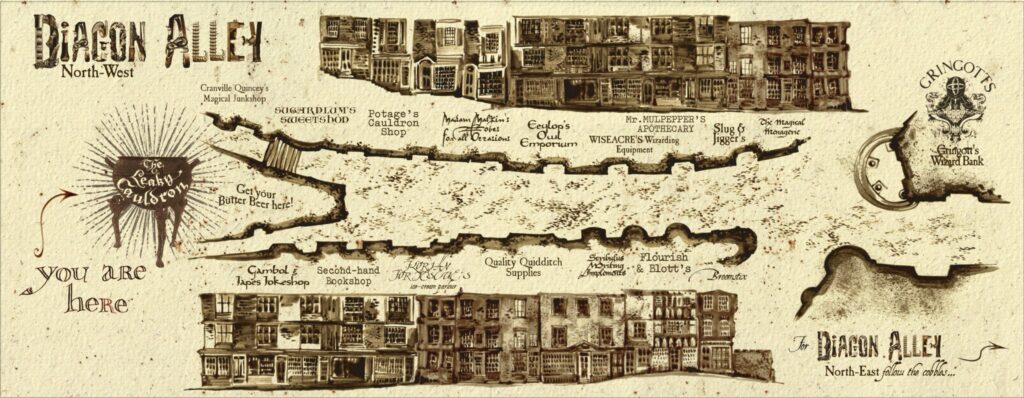 DIAGON ALLEY
North-West
Cranville Quincey's
Magical Junkshop
SUGARPLUM'S
SWEETSHOP
Potage's
Cauldron
Shop
Madam Malkin's
Robes
for all Occasions
Eeylop's
Owl
Emporium
Mr. MULPEPPER'S
APOTHECARY
WISEACRE'S Wizarding
Equipment
Slug &
Jigger's
The Magical
Menagerie
GRINGOTTS
Gringott's
Wizard Bank
The
Leaky
Cauldron
Get your
Butter Beer here!
you are
here
Gambol &
Japes Jokeshop
Second-hand
Bookshop
FLORIAN
FORTESCUE'S
ice-cream parlour
Quality Quidditch
Supplies
Scribulus
Writing
Implements
Flourish
& Blott's
Broomstix
For DIAGON ALLEY
North-East follow the cobbles...